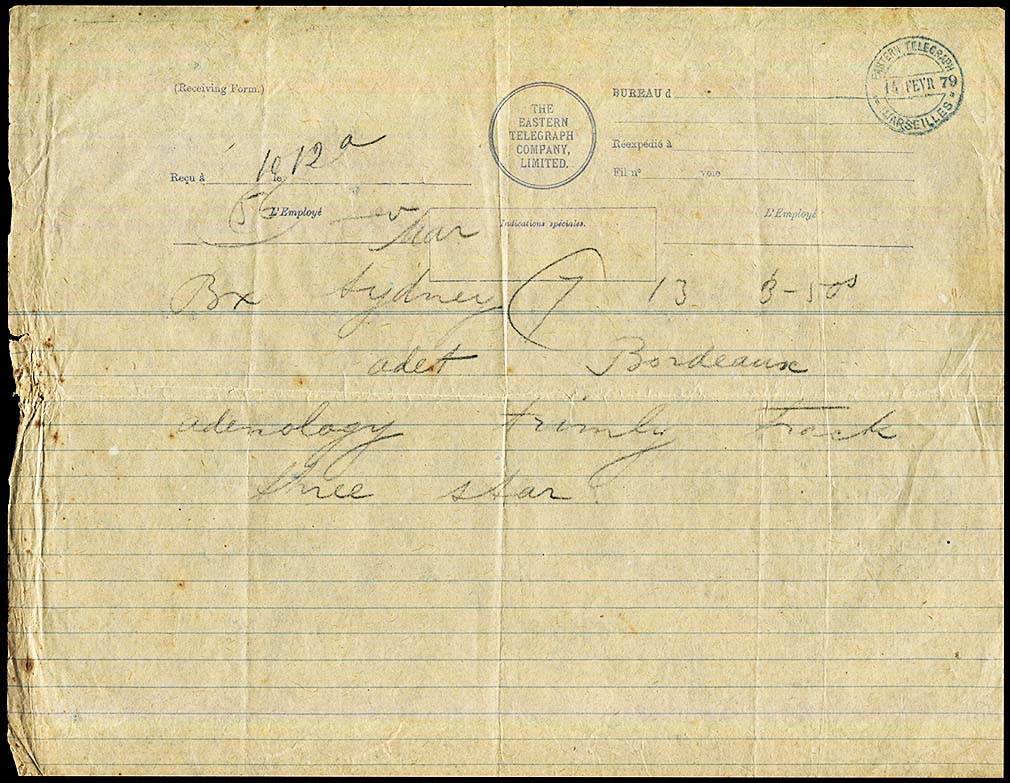 EASTERN TELEGRAPH
14 FEVR 79
MARSEILLES
(Receiving Form.)
THE
EASTERN
TELEGRAPH
COMPANY,
LIMITED.
BUREAU d
Réexpédié à
Fil n° voie
Reçu à 10 le 12 a
L'Employé
Indications spéciales.
L'Employé
Mar
Bx Sydney 7 13 3-50s
adet Bordeaux
adenology trimly track
three star